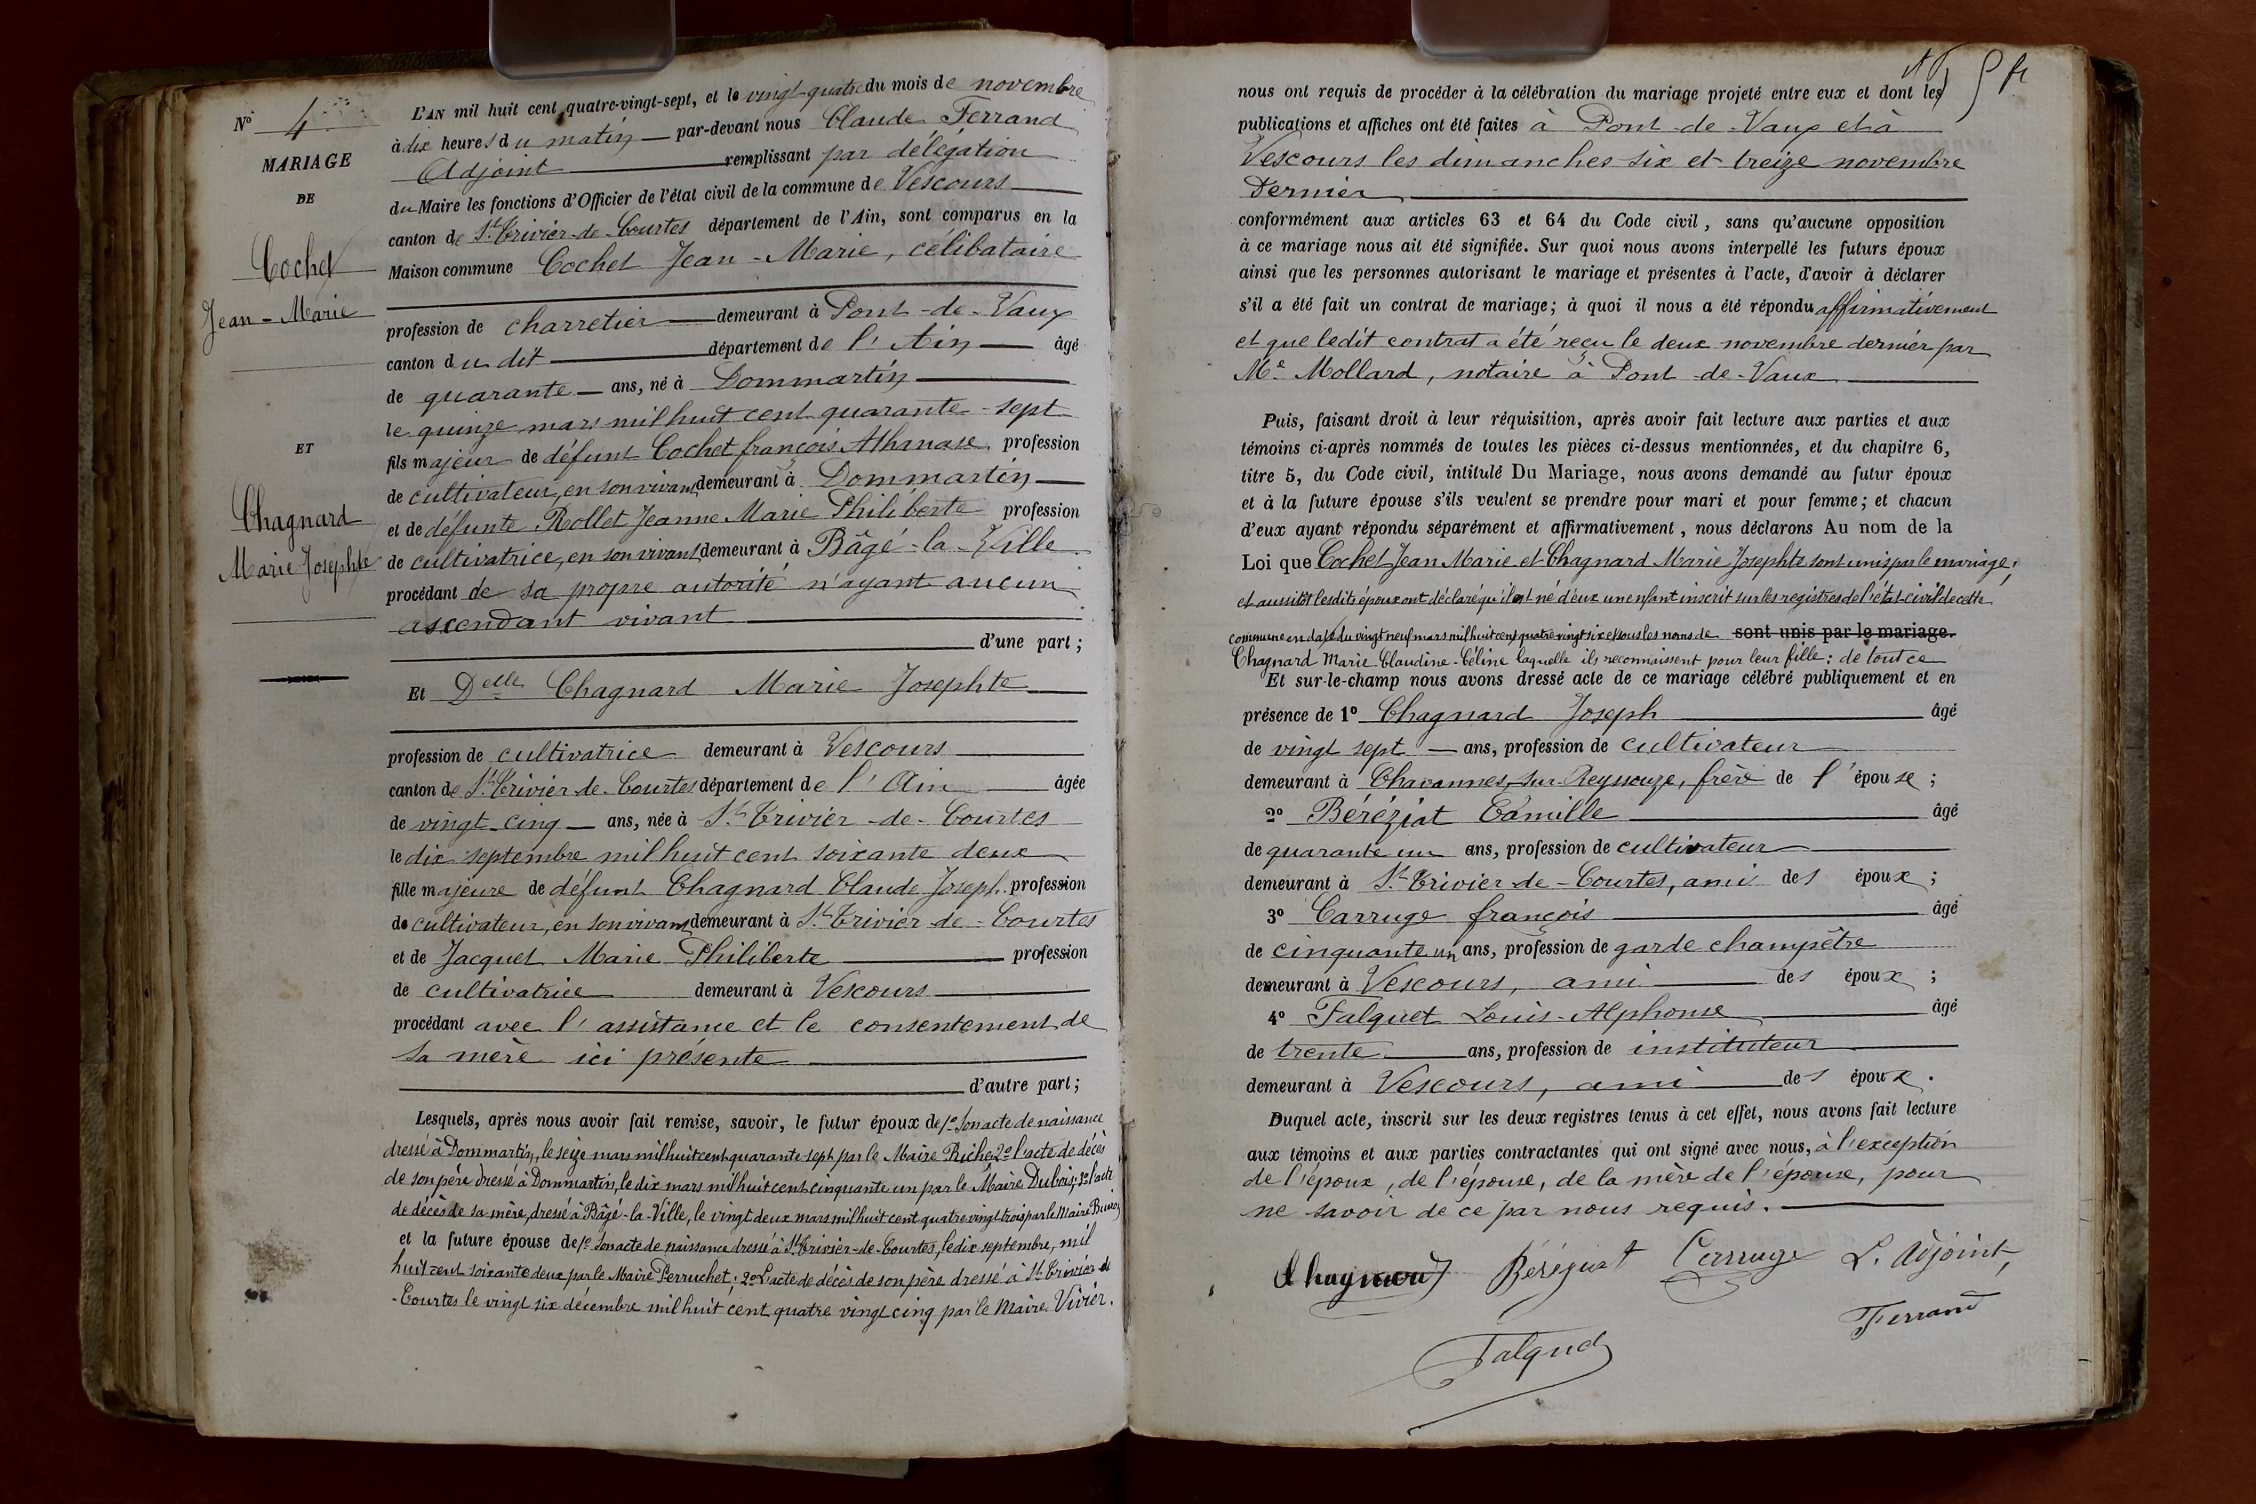 N° 4
MARIAGE
DE
Cochet
Jean-Marie
ET
Chagnard
Marie Josephte
L'AN mil huit cent quatre-vingt-sept, et le vingt-quatre du mois de novembre
à dix heures du matin par-devant nous Claude Ferrand
Adjoint remplissant par délégation
du Maire les fonctions d'Officier de l'état civil de la commune de Vescours
canton de St Trivier-de-Courtes département de l'Ain, sont comparus en la
Maison commune Cochet Jean-Marie, célibataire
profession de charretier demeurant à Pont-de-Vaux
canton du dit département de l'Ain âgé
de quarante ans, né à Dommartin
le quinze mars mil huit cent quarante-sept
fils majeur de défunt Cochet françois Athanase profession
de cultivateur, en son vivant demeurant à Dommartin
et de défunte Rollet Jeanne Marie Philiberte profession
de cultivatrice, en son vivant, demeurant à Bâgé-la-Ville
procédant de sa propre autorité n'ayant aucun
ascendant vivant
d'une part ;
Et Delle Chagnard Marie Josephte
profession de cultivatrice demeurant à Vescours
canton de St Trivier-de-Courtes département de l'Ain âgée
de vingt-cinq ans, née à St Trivier-de-Courtes
le dix septembre mil huit cent soixante deux
fille majeure de défunt Chagnard Claude Joseph profession
de cultivateur, en son vivant demeurant à St Trivier-de-Courtes
et de Jacquet Marie Philiberte profession
de cultivatrice demeurant à Vescours
procédant avec l'assistance et le consentement de
sa mère ici présente
d'autre part ;
Lesquels, après nous avoir fait remise, savoir, le futur époux de 1° son acte de naissance
dressé à Dommartin, le seize mars mil huit cent quarante sept par le Maire Riche, 2° l'acte de décès
de son père dressé à Dommartin, le dix mars mil huit cent cinquante un par le Maire Dubois; 3° l'acte
de décès de sa mère, dressé à Bâgé-la-Ville, le vingt deux mars mil huit cent quatre vingt trois par le Maire
et la future épouse de 1° son acte de naissance dressé à St Trivier-de-Courtes, le dix septembre, mil
huit cent soixante deux par le Maire Perruchet; 2° l'acte de décès de son père dressé à St Trivier de
-Courtes le vingt six décembre mil huit cent quatre vingt cinq par le Maire Vivier.
5 fr
nous ont requis de procéder à la célébration du mariage projeté entre eux et dont les
publications et affiches ont été faites à Pont-de-Vaux et à
Vescours les dimanches six et treize novembre
dernier
conformément aux articles 63 et 64 du Code civil, sans qu'aucune opposition
à ce mariage nous ait été signifiée. Sur quoi nous avons interpellé les futurs époux
ainsi que les personnes autorisant le mariage et présentes à l'acte, d'avoir à déclarer
s'il a été fait un contrat de mariage ; à quoi il nous a été répondu affirmativement
et que ledit contrat a été reçu le deux novembre dernier par
Me Mollard, notaire à Pont-de-Vaux
Puis, faisant droit à leur réquisition, après avoir fait lecture aux parties et aux
témoins ci-après nommés de toutes les pièces ci-dessus mentionnées, et du chapitre 6,
titre 5, du Code civil, intitulé Du Mariage, nous avons demandé au futur époux
et à la future épouse s'ils veulent se prendre pour mari et pour femme ; et chacun
d'eux ayant répondu séparément et affirmativement, nous déclarons Au nom de la
Loi que Cochet Jean Marie et Chagnard Marie Josephte sont unis par le mariage;
et aussitôt lesdits époux ont déclaré qu'il est né d'eux un enfant inscrit sur les registres de l'état-civil de cette
commune en date du vingt neuf mars mil huit cent quatre vingt six et sous les noms de sont unis par le mariage.
Chagnard Marie-Claudine-Céline laquelle ils reconnaissent pour leur fille: de tout ce
Et sur-le-champ nous avons dressé acte de ce mariage célébré publiquement et en
présence de 1° Chagnard Joseph âgé
de vingt sept ans, profession de cultivateur
demeurant à Chavannes-sur-Reyssouze, frère de l'épouse ;
2° Béréziat Camille âgé
de quarante un ans, profession de cultivateur
demeurant à St Trivier-de-Courtes, ami des époux ;
3° Carruge françois âgé
de cinquante un ans, profession de garde champêtre
demeurant à Vescours, ami des époux ;
4° Falquet Louis-Alphonse âgé
de trente ans, profession de instituteur
demeurant à Vescours, ami des époux.
Duquel acte, inscrit sur les deux registres tenus à cet effet, nous avons fait lecture
aux témoins et aux parties contractantes qui ont signé avec nous, à l'exception
de l'époux, de l'épouse, de la mère de l'épouse, pour
ne savoir de ce par nous requis.
Chagnard Béréziat Carruge L. Adjoint,
Ferrand
Falquet